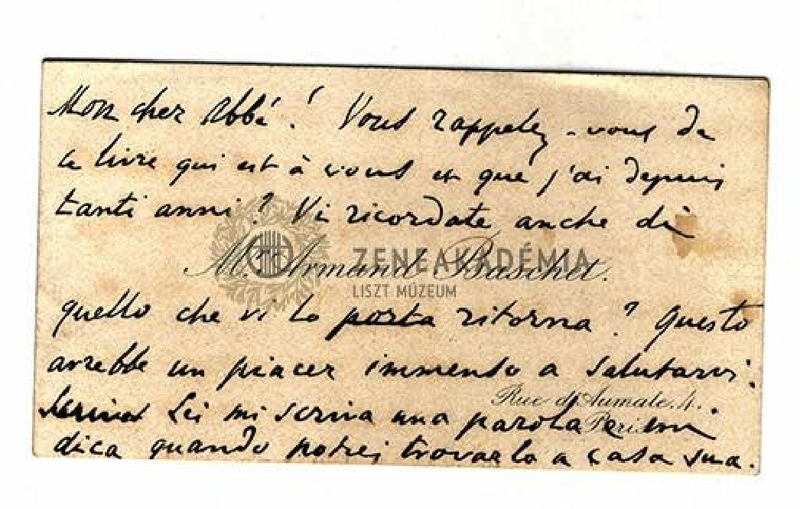 Mon cher Abbé! Vous rappelez-vous de
ce livre qui est à vous et que j'ai depuis
tanti anni? Vi ricordate anche di
ZENEAKADÉMIA
M. Armand Baschet.
LISZT MÚZEUM
quello che vi lo porta ritorna? Questo
avrebbe un piacer immenso a salutarvi.
Rue d'Aumale. 4.
Lei mi scriva una parola e mi
Paris
dica quando potrei trovarlo a casa sua.